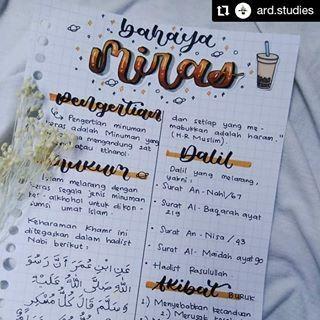 ard.studies
bahaya
miras
Pengertian
↳ Pengertian minuman
keras adalah Minuman yang
mengandung zat
atau ethanol.
Hukum
Islam melarang dengan
keras segala jenis minum
alkhohol untuk dikon-
sumsi umat Islam
Keharaman Khamr ini
ditegaskan dalam hadist
Nabi berikut :
عَنِ ابْنِ عُمَرَ أَنَّ رَسُوْ
اللهِ صَلَّى اللهُ عَلَيْهِ
وَسَلَّمَ قَالَ كُلُّ مُسْكِرٍ
dan setiap yang me-
mabukkan adalah haram."
(H.R Muslim)
Dalil
Dalil yang melarang,
yakni :
• Surat An-Nahl/67
• Surat Al-Baqarah ayat
219
• Surat An-Nisa/43
• Surat Al-Maidah ayat 90
• Hadist Rasulullah
Akibat BURUK
1) Menyebabkan kecanduan
2) Merusak